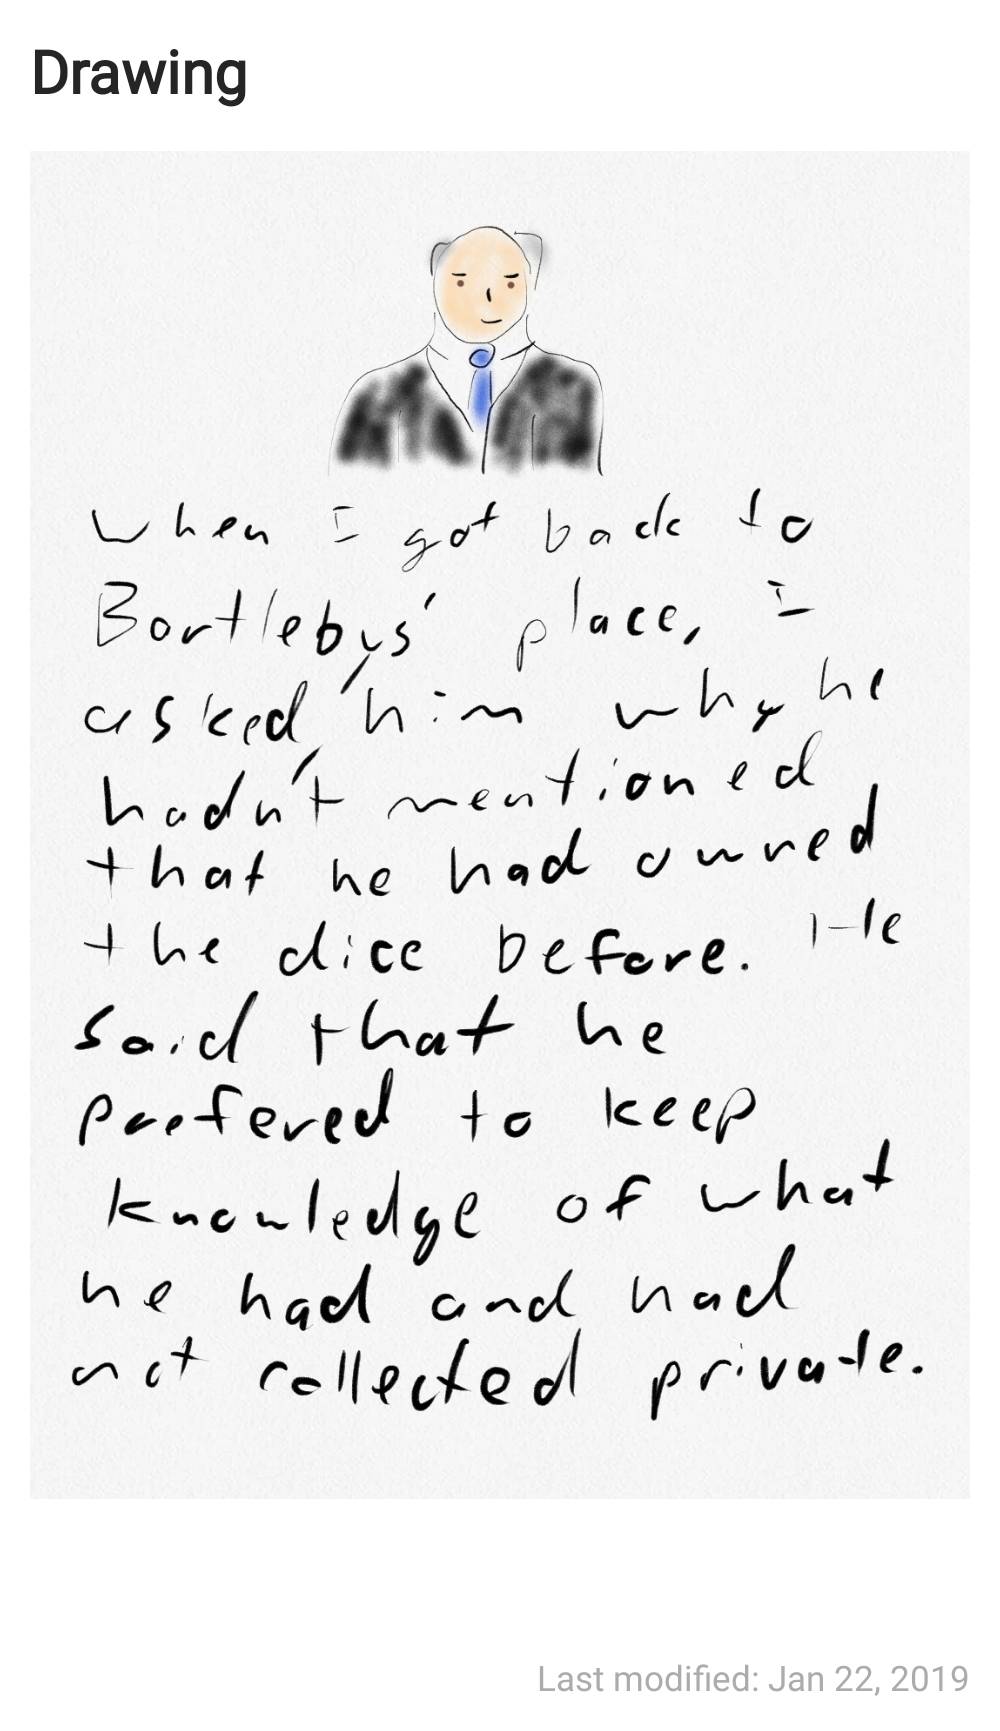 Drawing
When I got back to
Bortlebys' place, I
asked him why he
hadn't mentioned
that he had owned
the dice before. He
said that he
prefered to keep
knowledge of what
he had and had
not collected private.
Last modified: Jan 22, 2019